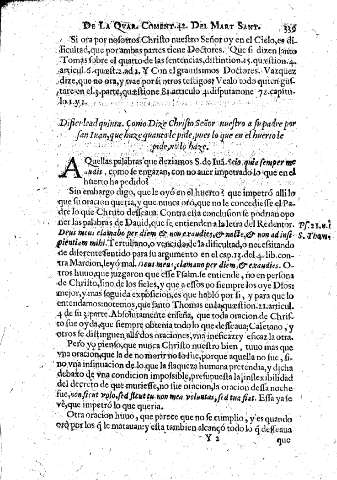 DE LA QVAR. COMENT. 42. DEL MART SANT. 339
Si ora por nosotros Christo nuestro Señor oy en el Cielo, es di-
ficultad, que por ambas partes tiene Doctores. Que si dizen Santo
Tomas sobre el quarto de las sentencias, distintion 15. quæstion. 4.
articul. 6. quæst. 2. ad 2. Y Con el grauismos Doctores. Vazquez
dize, que no ora, y trae por si otros testigos? Vealo todo quien gus-
tare en el 3. parte, quæstione 81 articulo 4. disputatione 72. capitu-
lo 1. y 2.
Dificultad quinta. Como Dize Christo Señor nuestro a su padre por
san Iuan, que haze quanto le pide, pues lo que en el huerto le
pide, no lo haze.
AQuellas palabras que deziamos S. de Iuã. Scio quia semper me
audis, como se engazan, con no auer impetrado lo que en el
huerto ha pedido?
Sin embargo digo, que le oyó en el huerto? que impetró alli lo
que su oracion queria, y que nunca oró, que no le concediesse el Pa-
dre lo que Christo desseaua. Contra esta conclusion se podrian opo-
ner las palabras de Dauid, que se entienden a la letra del Redentor.
Deus meus clamabo per diem & non exaudies, & nocte, & non ad insi-
pientiam mihi. Tertuliano, o vencidas de la dificultad, o necessitando
de diferente sentido para su argumento en el cap. 15. del 4. lib. con-
tra Marcion, leyó mal. Deus meus, clamano per diem, & exaudies. O-
tros huuo, que juzgaron que esse Psalm. se entiende, no en persona
de Christo, sino de los fieles, y que a essos no siempre los oye Dios:
mejor, y mas seguida exposicion, es que habló por si, y para que lo
entendamos notemos, que santo Thomas enla quæstion. 21. articul.
4. de su 3. parte. Absolutamente enseña, que toda oracion de Chris-
to fue oyda, que siempre obtenia todo lo que desseaua; Caietano, y
otros se distinguen, alli dos oraciones, vna ineficaz y eficaz la otra.
Pero yo pienso, que nunca Christo nuestro bien, tuuo mas que
vna oracion, que la de no morir no lo fue, porque aquella no fue, si-
no vna insinuacion de lo que la flaqueza humana pretendia, y dicha
debaxo de vna condicion impossible, presupuesta la inflexibilidad
del decreto de que muriesse, no fue oracion, la oracion dessa noche
fue, non sicut volo, sed sicut tu non mea voluntas, sed tua fiat. Essa ya se
vè, que impetró lo que queria.
Otra oracion huuo, que parece que no se cumplio, y es quando
oró por los q̃ le matauan: y esta tambien alcançó todo lo q̃ desseaua
Y 2 que
Ps. 21. n. 3
S. Thom.